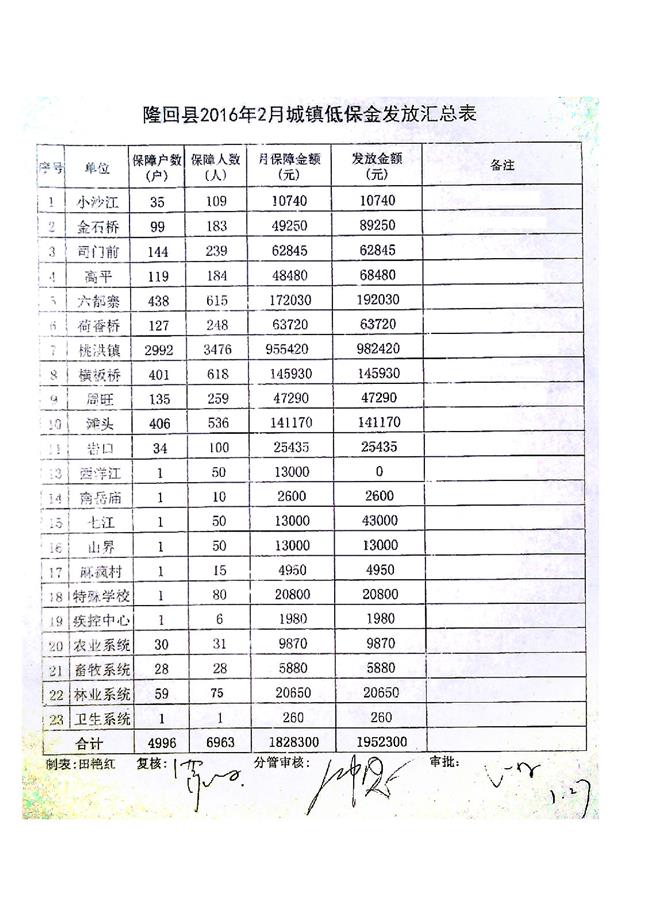 隆回县2016年2月城镇低保金发放汇总表
序号 单位 保障户数(户) 保障人数(人) 月保障金额(元) 发放金额(元) 备注
1 小沙江 35 109 10740 10740
2 金石桥 99 183 49250 89250
3 司门前 144 239 62845 62845
4 高平 119 184 48480 68480
5 六都寨 438 615 172030 192030
6 荷香桥 127 248 63720 63720
7 桃洪镇 2992 3476 955420 982420
8 横板桥 401 618 145930 145930
9 周旺 135 259 47290 47290
10 滩头 406 536 141170 141170
11 岩口 34 100 25435 25435
13 西洋江 1 50 13000 0
14 南岳庙 1 10 2600 2600
15 七江 1 50 13000 43000
16 山界 1 50 13000 13000
17 麻疯村 1 15 4950 4950
18 特殊学校 1 80 20800 20800
19 疾控中心 1 6 1980 1980
20 农业系统 30 31 9870 9870
21 畜牧系统 28 28 5880 5880
22 林业系统 59 75 20650 20650
23 卫生系统 1 1 260 260
合计 4996 6963 1828300 1952300
制表:田艳红 复核: 分管审核: 审批:
1.27